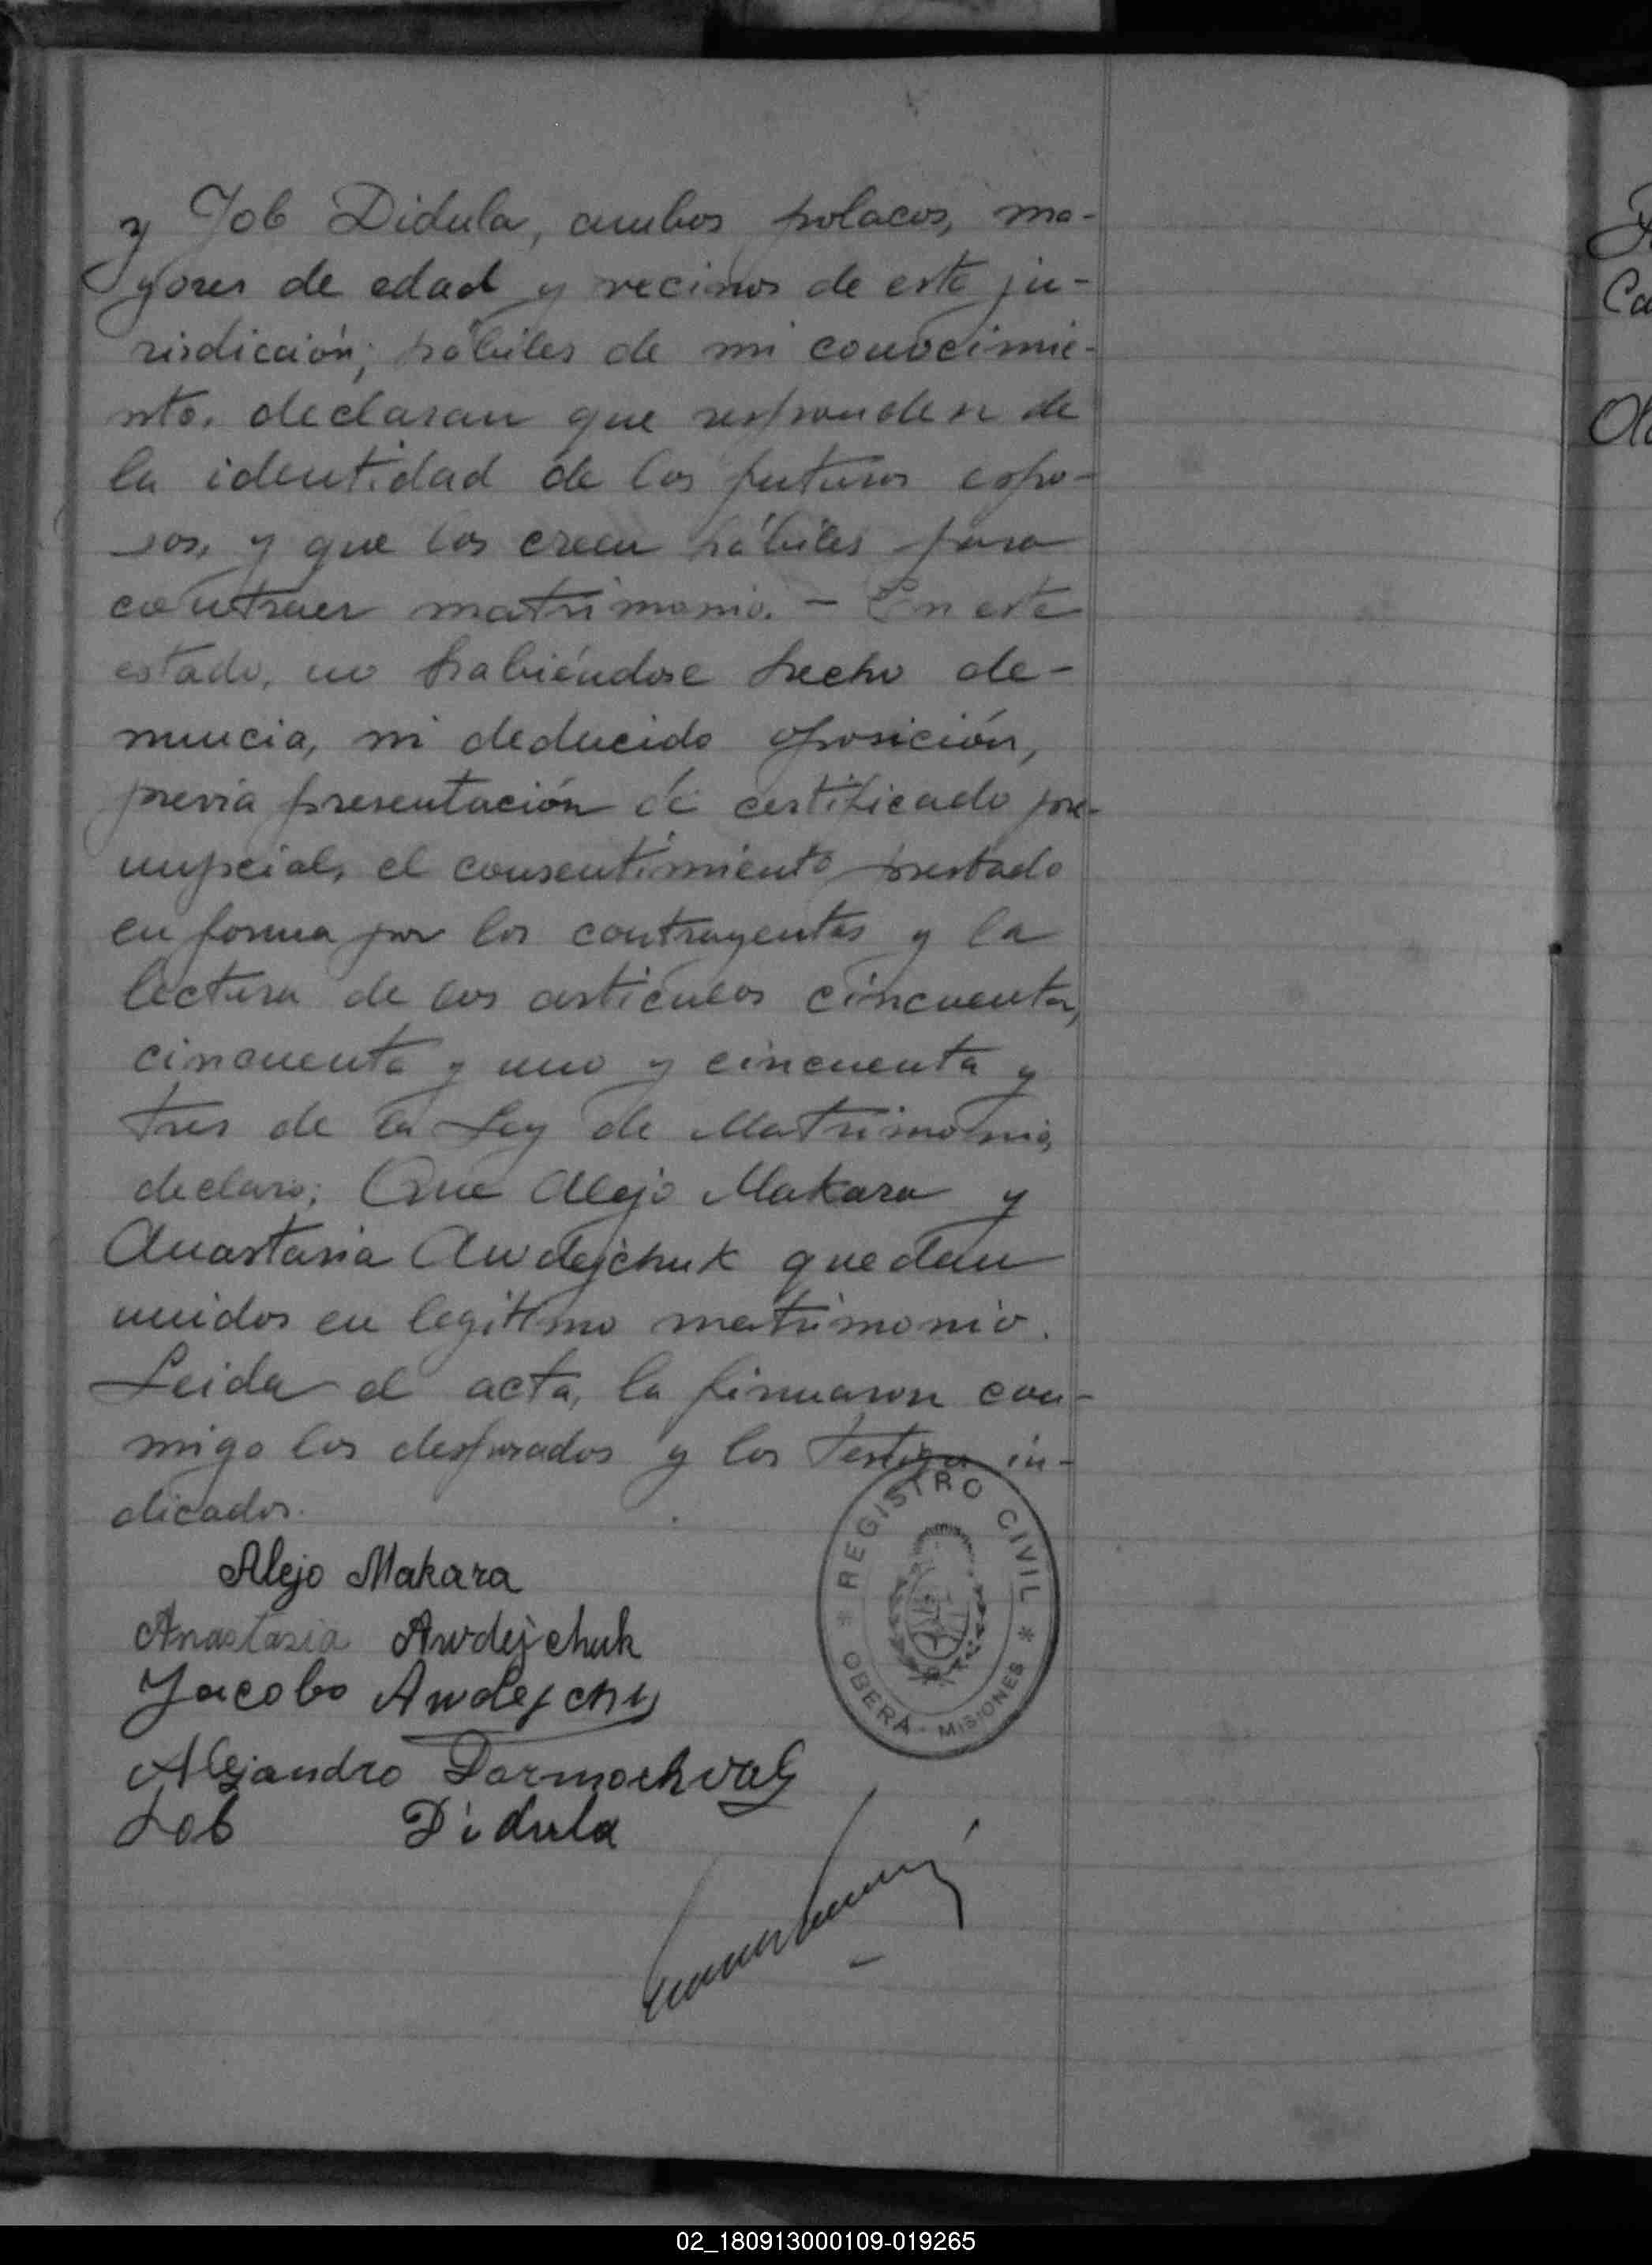 y Job Didula, ambos polacos, ma-
yores de edad y vecinos de esta ju-
risdicción; hábiles de mi conocimie-
nto, declaran que responden de
la identidad de los futuros espo-
sos, y que los creen hábiles para
contraer matrimonio. – En este
estado, no habiéndose hecho de-
nuncia, ni deducido oposición,
previa presentación de certificado pre-
nupcial, el consentimiento prestado
en forma por los contrayentes y la
lectura de los artículos cincuenta,
cincuenta y uno y cincuenta y
tres de la Ley de Matrimonio,
declaro; Que Alejo Makara y
Anastasia Awdejchuk quedan
unidos en legítimo matrimonio.
Leida el acta, la firmaron con-
migo los desposados y los testigos in-
dicados.
REGISTRO CIVIL
* OBERÁ - MISIONES *
Alejo Makara
Anastasia Awdejchuk
Jacobo
Alejandro
Job Didula
Fe
Ca
02_180913000109-019265